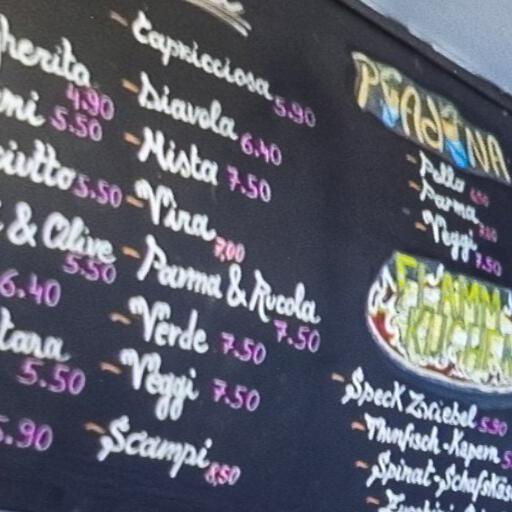 herita 4.90
mi 5.50
5.50
& Olive
5.50
6.40
tara
5.50
5.90
- Capricciosa 5.90
- Diavola 6.40
- Mista 7.50
- Vira 7,00
- Parma & Rucola
7.50
- Verde 7.50
- Veggi 7.50
- Scampi 8,50
PIADINA
- Pollo
- Parma
- Veggi 7.50
FLAMM
KUCHEN
- Speck Zwiebel 5.90
- Thunfisch-Kapern 5
- Spinat-Schafskäs